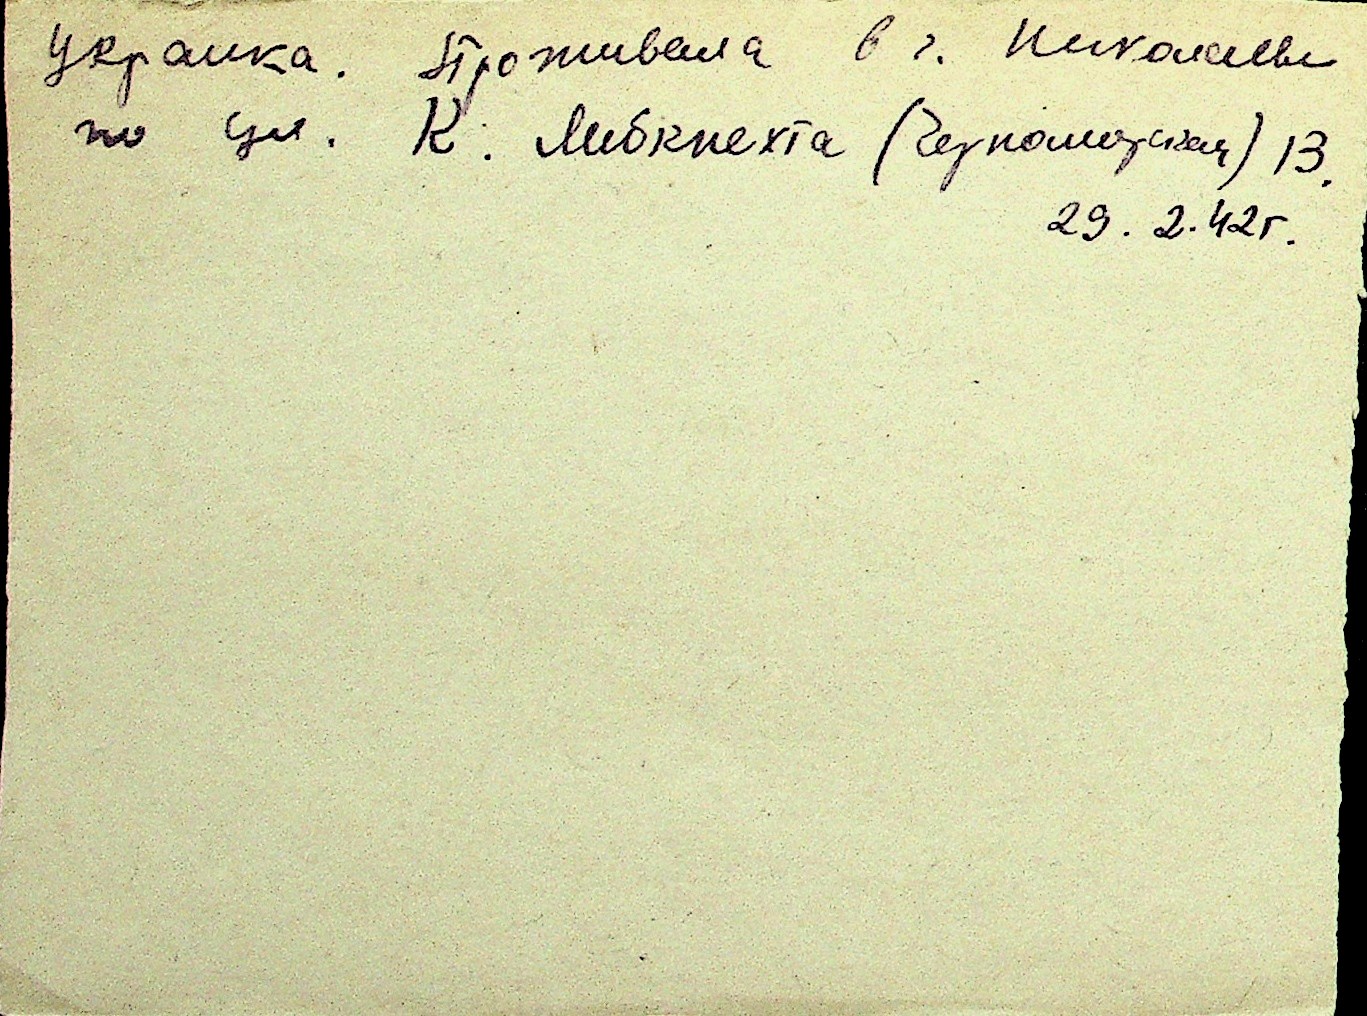 Украинка. Проживала в г. Николаеве
по ул. К. Либкнехта (Черноморская) 13.
29. 2.42г.